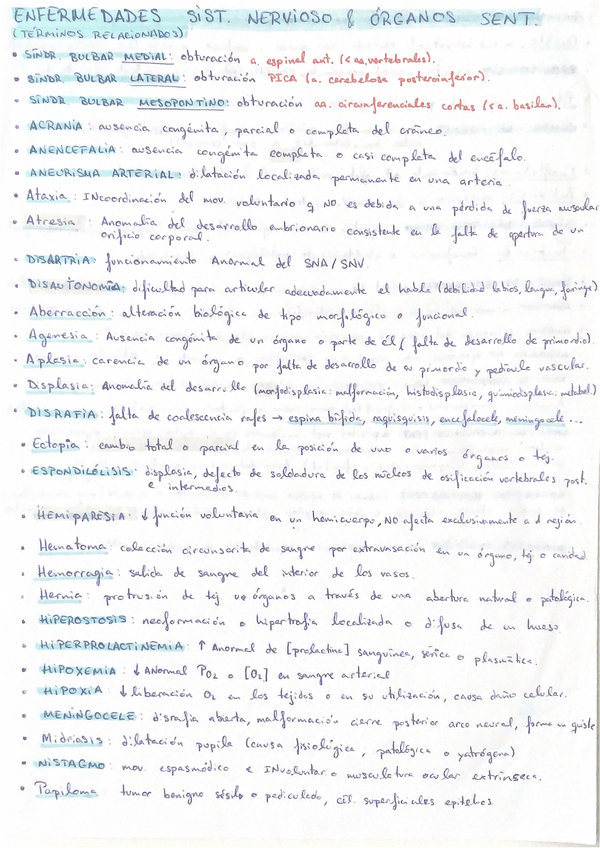 ENFERMEDADES SIST. NERVIOSO & ÓRGANOS SENT.
(TÉRMINOS RELACIONADOS)
• SÍNDR. BULBAR MEDIAL: obturación a. espinal ant. (< aa. vertebrales).
• SÍNDR. BULBAR LATERAL: obturación PICA (a. cerebelosa posteroinferior).
• SÍNDR. BULBAR MESOPONTINO: obturación aa. circunferenciales cortas (< a. basilar).
• ACRANIA: ausencia congénita, parcial o completa del cráneo.
• ANENCEFALIA: ausencia congénita completa o casi completa del encéfalo.
• ANEURISMA ARTERIAL: dilatación localizada permanente en una arteria.
• Ataxia: INcoordinación del mov. voluntario q NO es debida a una pérdida de fuerza muscular
• Atresia: Anomalía del desarrollo embrionario consistente en la falta de apertura de un
orificio corporal.
• DISARTRIA: funcionamiento Anormal del SNA/SNV.
• DISAUTONOMÍA: dificultad para articular adecuadamente el habla (debilidad labios, lengua, faringe)
• Aberracción: alteración biológica de tipo morfológico o funcional.
• Agenesia: Ausencia congénita de un órgano o parte de él (falta de desarrollo de primordio).
• Aplasia: carencia de un órgano por falta de desarrollo de primordio y pedículo vascular.
• Displasia: Anomalía del desarrollo (morfodisplasia: malformación, histodisplasia, quimiodisplasia: metabol.)
• DISRAFIA: falta de coalescencia rafes → espina bífida, raquisquisis, encefalocele, meningocele...
• Ectopia: cambio total o parcial en la posición de uno o varios órganos o tej.
• ESPONDILÓLISIS: displasia, defecto de soldadura de los núcleos de osificación vertebrales post.
e intermedios
• HEMIPARESIA: ↓ función voluntaria en un hemicuerpo, NO afecta exclusivamente a 1 región.
• Hematoma: colección circunscrita de sangre por extravasación en un órgano, tej o cavidad.
• Hemorragia: salida de sangre del interior de los vasos.
• Hernia: protrusión de tej u órganos a través de una abertura natural o patológica.
• HIPEROSTOSIS: neoformación o hipertrofia localizada o difusa de un hueso.
• HIPERPROLACTINEMIA: ↑ Anormal de [prolactina] sanguínea, sérica o plasmática.
• HIPOXEMIA: ↓ ANormal PO₂ o [O₂] en sangre arterial
• HIPOXIA: ↓ liberación O₂ en los tejidos o en su utilización, causa daño celular.
• MENINGOCELE: disrafia abierta, malformación cierre posterior arco neural, forma un quiste
• Midriasis: dilatación pupila (causa fisiológica, patológica o yatrógena)
• NISTAGMO: mov. espasmódico e INvoluntar. o musculatura ocular extrínseca.
• Papiloma: tumor benigno sésil o pediculado, cél. superficiales epitelios